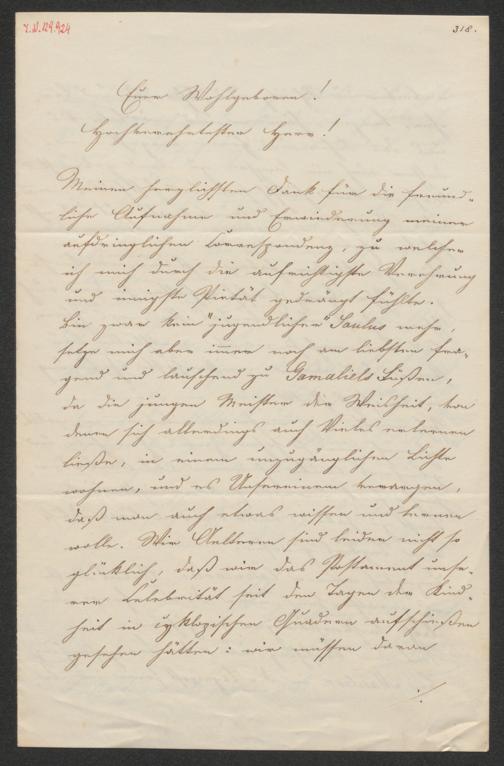 I.N. 129.924
318.
Euer Wohlgeboren!
Hochverehrtester Herr!
Meinen herzlichsten Dank für die freund-
liche Aufnahme und Erwiederung meiner
aufdringlichen Correspondenz, zu welcher
ich mich durch die aufrichtigste Verehrung
und innigste Pietät gedrängt fühlte.
Bin zwar kein "jugendlicher" Saulus mehr,
setze mich aber immer noch am liebsten fra-
gend und lauschend zu Gamaliels Füßen,
da die jungen Meister der Weisheit, von
denen sich allerdings auch Vieles erlernen
ließe, in einem unzugänglichen Lichte
wohnen, und es Unsereinem verargen,
daß man auch etwas wissen und lernen
wolle. Wir Aelteren sind leider nicht so
glücklich, daß wir das Postament unse-
rer Celebrität seit den Tagen der Kind-
heit in cyklopischen Quadern aufschießen
gesehen hätten: wir müssen daran
./.